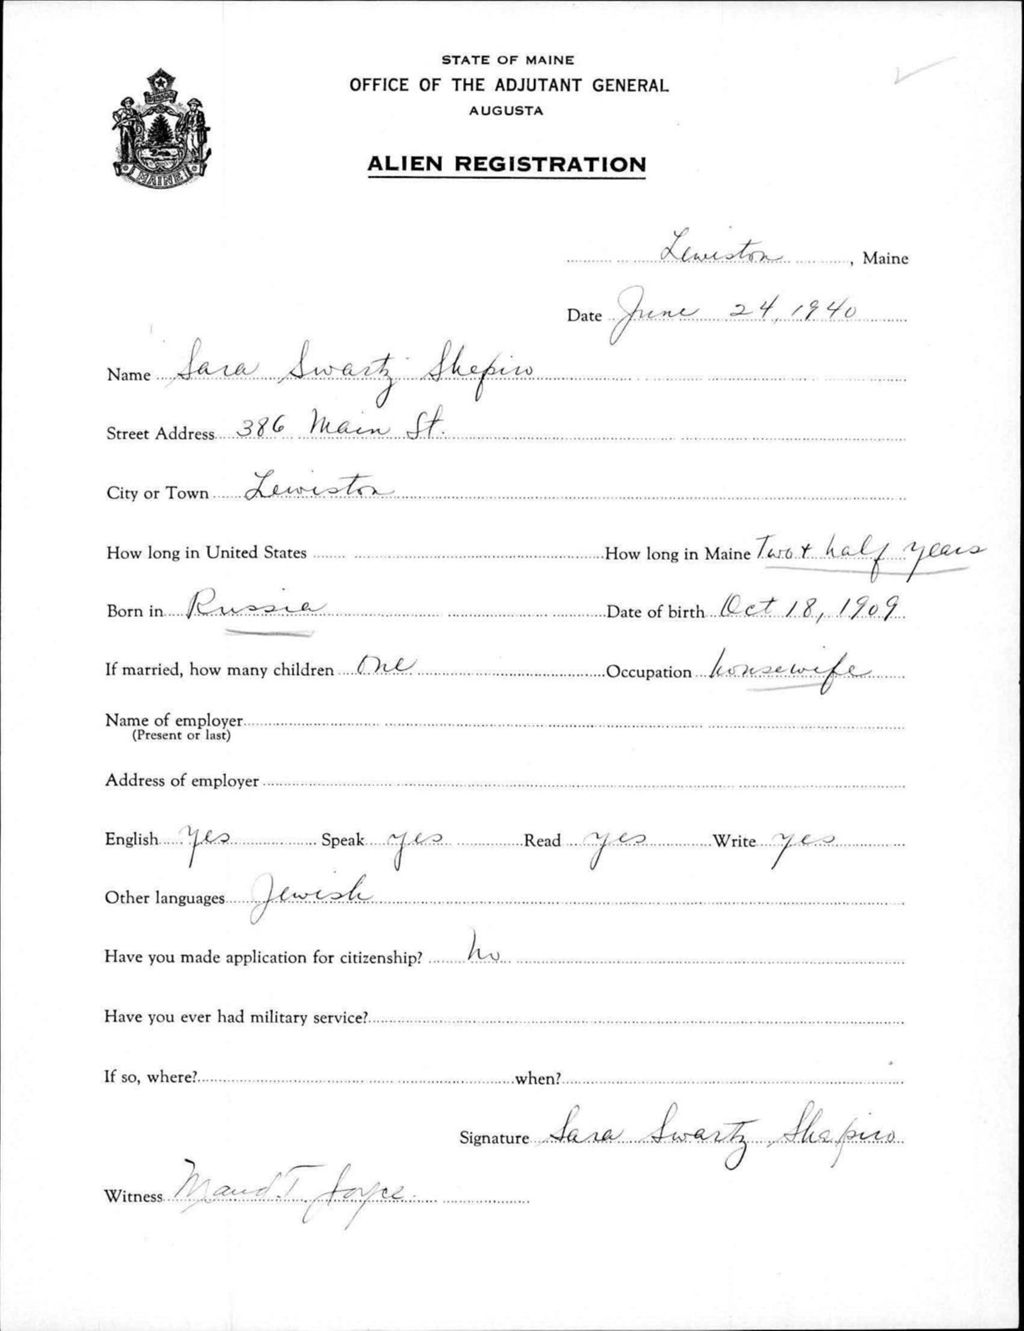 STATE OF MAINE
OFFICE OF THE ADJUTANT GENERAL
AUGUSTA
ALIEN REGISTRATION
MAINE
Lewiston, Maine
Date June 24, 1940
Name Sara Swartz Shepiro
Street Address 386 Main St.
City or Town Lewiston
How long in United States How long in Maine Two + half years
Born in Russia Date of birth Oct 18, 1909
If married, how many children One Occupation housewife
Name of employer
(Present or last)
Address of employer
English yes Speak yes Read yes Write yes
Other languages Jewish
Have you made application for citizenship? No
Have you ever had military service?
If so, where? when?
Signature Sara Swartz Shapiro
Witness Maud T. Joyce